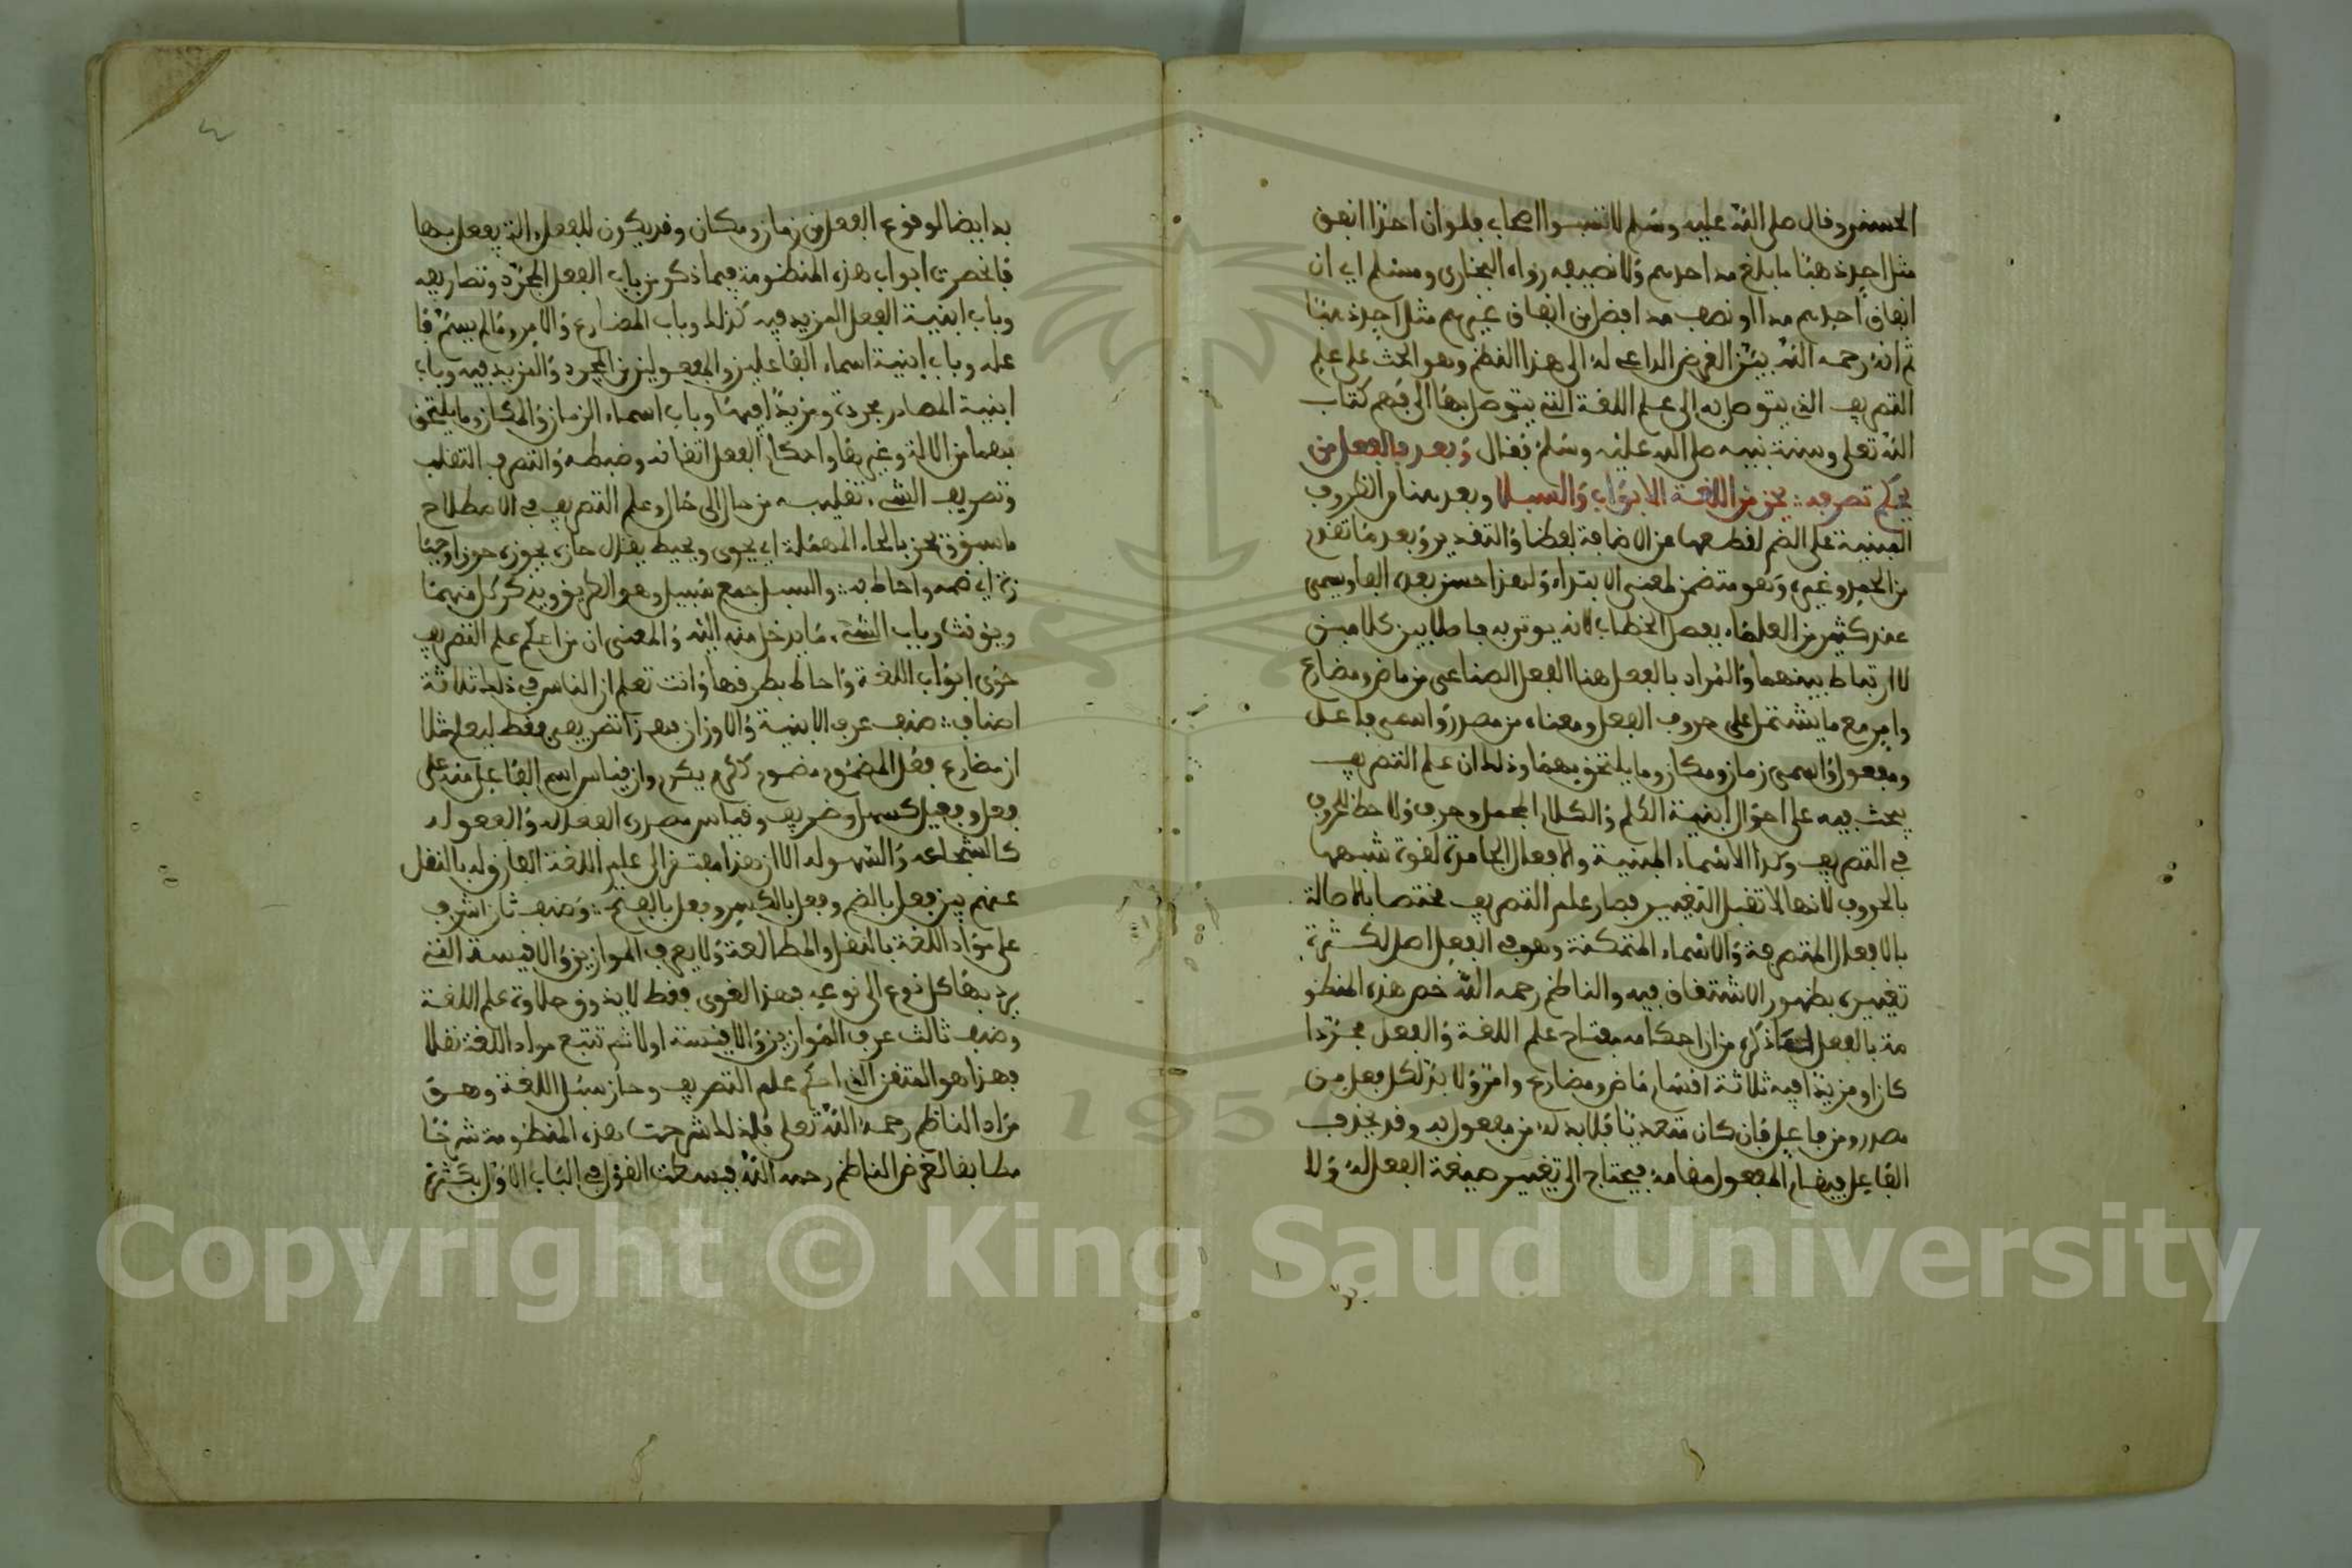 الحسنى وقال صلى الله عليه وسلم لا تسبوا اصحابي فلو ان احدكم انفق
مثل احد ذهبا ما بلغ مد احدهم ولا نصيفه رواه البخاري ومسلم اي ان
انفاق احدهم مدا او نصف مد افضل من انفاق غيرهم مثل احد ذهبا
ثم انه رحمه الله بين الغرض الداعي له الى هذا النظم وهو الحث على علم
التصريف الذي يتوصل به الى علم اللغة التي يتوصل بها الى فهم كتاب
الله تعلى وسنة نبيه صلى الله عليه وسلم فقال وبعد فالفعل من
يحكم تصرفه ∴ يحز من اللغة الابواب والسبلا وبعد هنا من الظروف
المبنية على الضم لقطعها عن الاضافة لفظا والتقدير وبعد ما تقدم
من الحمد وغيره وهو متضمن لمعنى الابتداء ولهذا حسن بعده الفا ويسمى
عند كثير من العلماء بفصل الخطاب لانه يوتى به فاصلا بين كلامين
لا ارتباط بينهما والمراد بالفعل هنا الفعل الصناعي من ماض ومضارع
وامر مع ما يشتمل على حروف الفعل ومعناه من مصدر واسمي فاعل
ومفعول واسمي زمان ومكان وما يلتحق بهما وذلك ان علم التصريف
يبحث فيه على احوال ابنية الكلم والكلام اسم وفعل وحرف ولا حظ للحروف
في التصريف وكذا الاسماء المبنية والافعال الجامدة لقوة شبهها
بالحروف لانها لا تقبل التغيير فصار علم التصريف مختصا بالاصالة
بالافعال المتصرفة والاسماء المتمكنة وهو في الفعل اصل لكثرة
تغييره بظهور الاشتقاق فيه والناظم رحمه الله خص هذه المنظو
مة بالفعل لما ذكره من ان احكامه مفتاح علم اللغة والفعل مجردا
كان او مزيدا فيه ثلاثة اقسام ماض ومضارع وامر ولا بد لكل فعل من
مصدر ومن فاعل فان كان متعديا فلا بد له من مفعول به وقد يحذف
الفاعل فيقام المفعول مقامه فيحتاج الى تغيير صيغة الفعل له ولا
بد
٤
بد ايضا لوقوع الفعل من زمان ومكان وقد يكون للفعل الة يفعل بها
فانحصرت ابواب هذه المنظومة فيما ذكر من باب الفعل المجرد وتصاريفه
وباب ابنية الفعل المزيد فيه كذلك وباب المضارع والامر وما لم يسم فا
عله وباب ابنية اسماء الفاعلين والمفعولين من المجرد والمزيد فيه وباب
ابنية المصادر مجردة ومزيدا فيها وباب اسماء الزمان والمكان وما يلتحق
بهما من الالة وغيرها واحكام الفعل اتقانه وضبطه والتصرف التقلب
وتصريف الشيء تقليبه من حال الى حال وعلم التصريف في الاصطلاح
ما سبق ويحز بالحاء المهملة اي يحوي ويحيط يقال حازه يحوزه حوزا وحيا
زة اي ضمه واحاط به ∴ والسبل جمع سبيل وهو الطريق ويذكر كل منهما
ويؤنث وباب الشيء ما يدخل منه اليه والمعنى ان من احكم علم التصريف
حوى ابواب اللغة واحاط بطرقها وانت تعلم ان الناس في ذلك ثلاثة
اصناف ∴ صنف عرف الابنية والاوزان فهذا تصريفي فقط ليعلم مثلا
ان مضارع فعل المضموم مضموم ككرم يكرم وان قياس اسم الفاعل منه على
فعل وفعيل كسهل وظريف وقياس مصدره الفعالة والفعولة
كالشجاعة والسهولة الا ان هذا مفتقر الى علم اللغة الفارق له بالنقل
عنهم بين فعل بالضم وفعل بالكسر وفعل بالفتح ∴ وصنف ثان اشرف
على مواد اللغة بالنقل والمطالعة ولا يعرف الموازين والاقيسة التي
يرد بها كل نوع الى نوعه فهذا لغوي فقط لا يذوق حلاوة علم اللغة
وصنف ثالث عرف الموازين والاقيسة اولا ثم تتبع مواد اللغة نقلا
فهذا هو المتقن الذي احكم علم التصريف وحاز سبل اللغة وهو
مراد الناظم رحمه الله تعلى فلذلك شرحت هذه المنظومة شرحا
مطابقا لغرض الناظم رحمه الله فبسطت القول في الباب الاول بكثرة
Copyright © King Saud University
1957